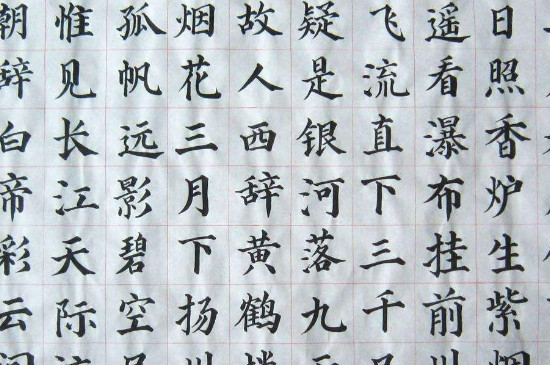 日照香炉生紫烟
遥看瀑布挂前川
飞流直下三千尺
疑是银河落九天
故人西辞黄鹤楼
烟花三月下扬州
孤帆远影碧空尽
惟见长江天际流
朝辞白帝彩云间